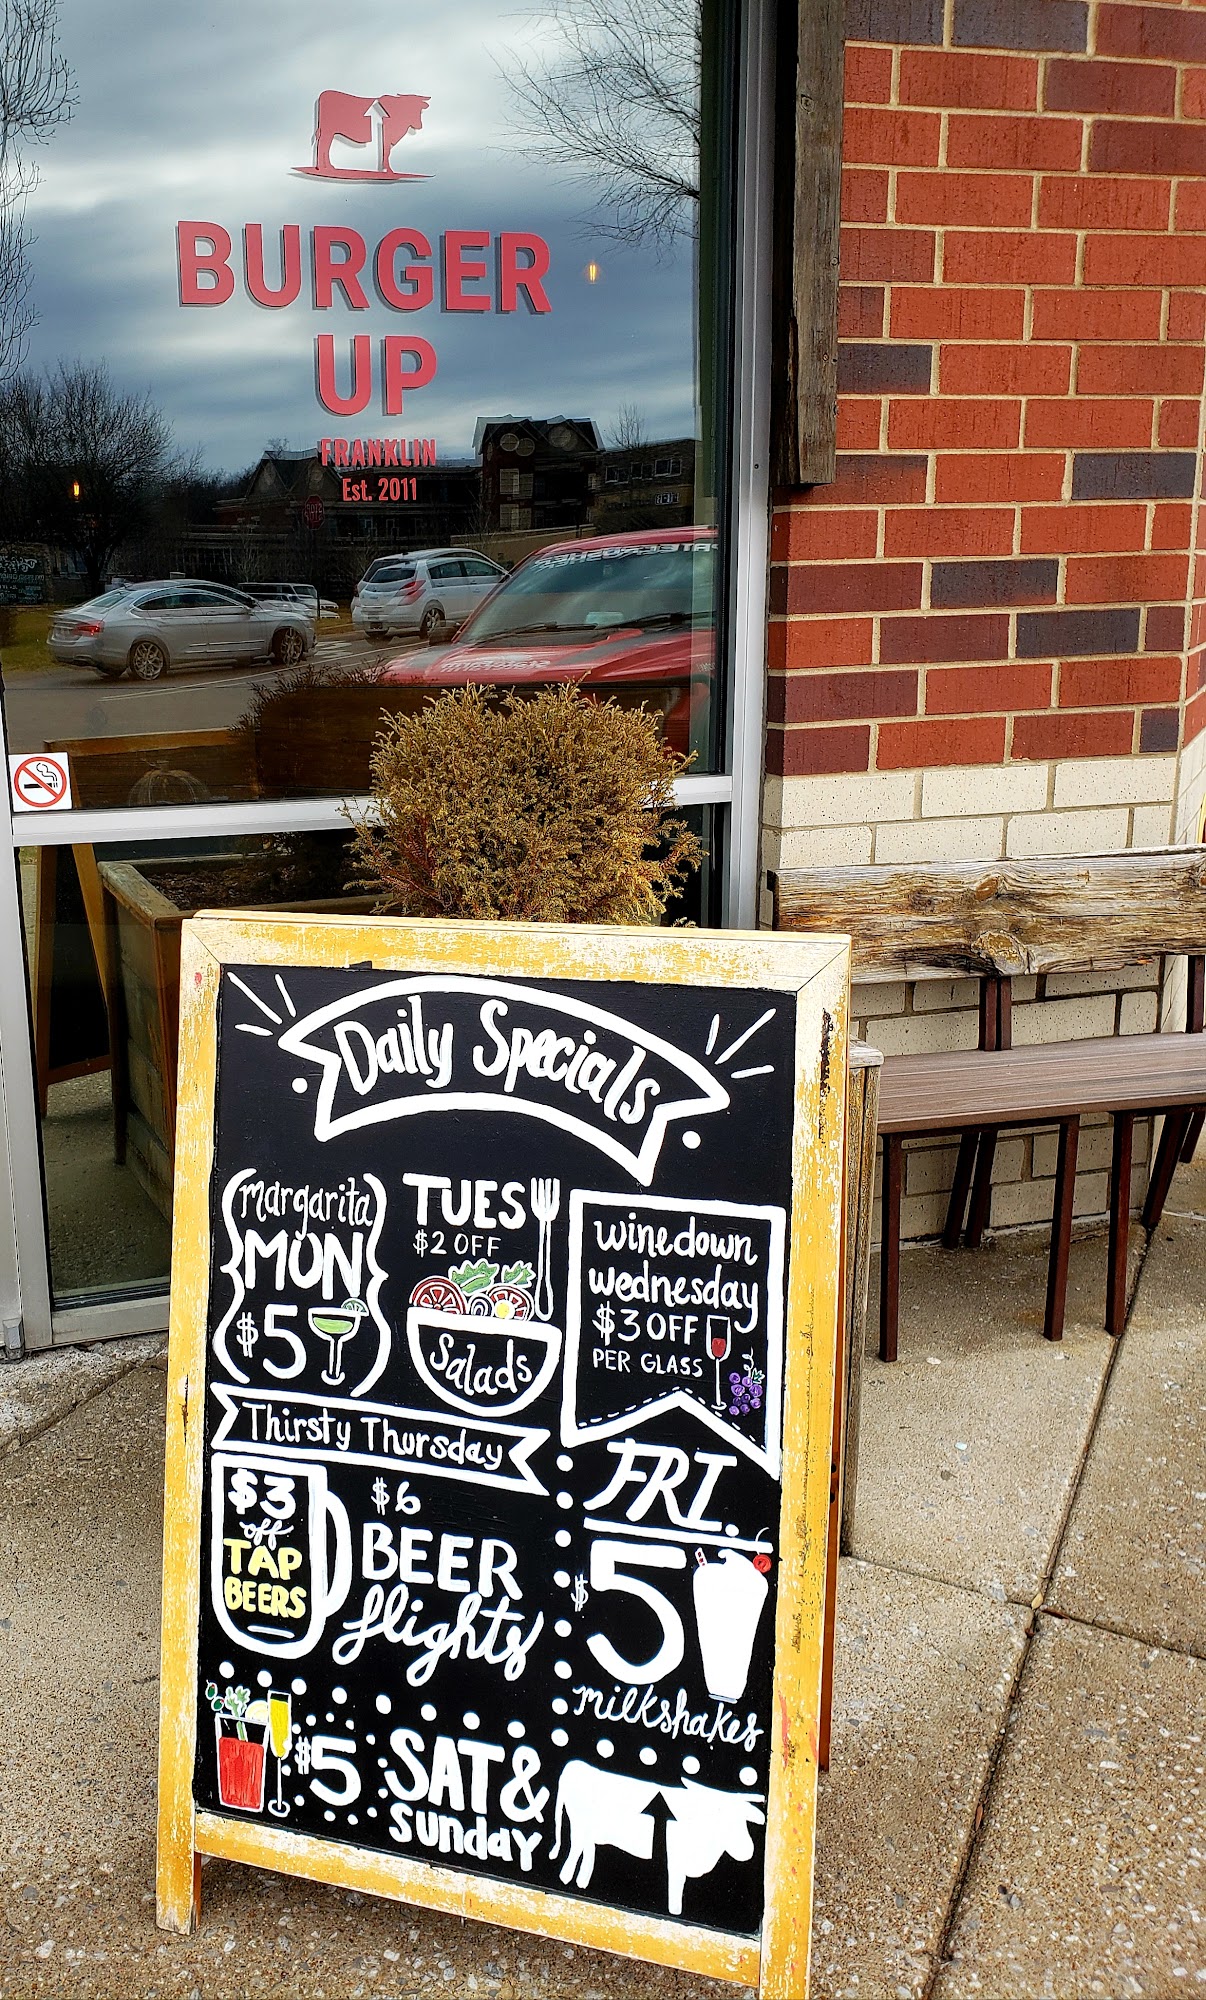 BURGER
UP
FRANKLIN
Est. 2011
Daily Specials
margarita
MON
$5
TUES
$2 OFF
Salads
winedown
wednesday
$3 OFF
PER GLASS
Thirsty Thursday
$3
off
TAP
BEERS
$6
BEER
flights
FRI.
$5
milkshakes
$5
SAT &
Sunday